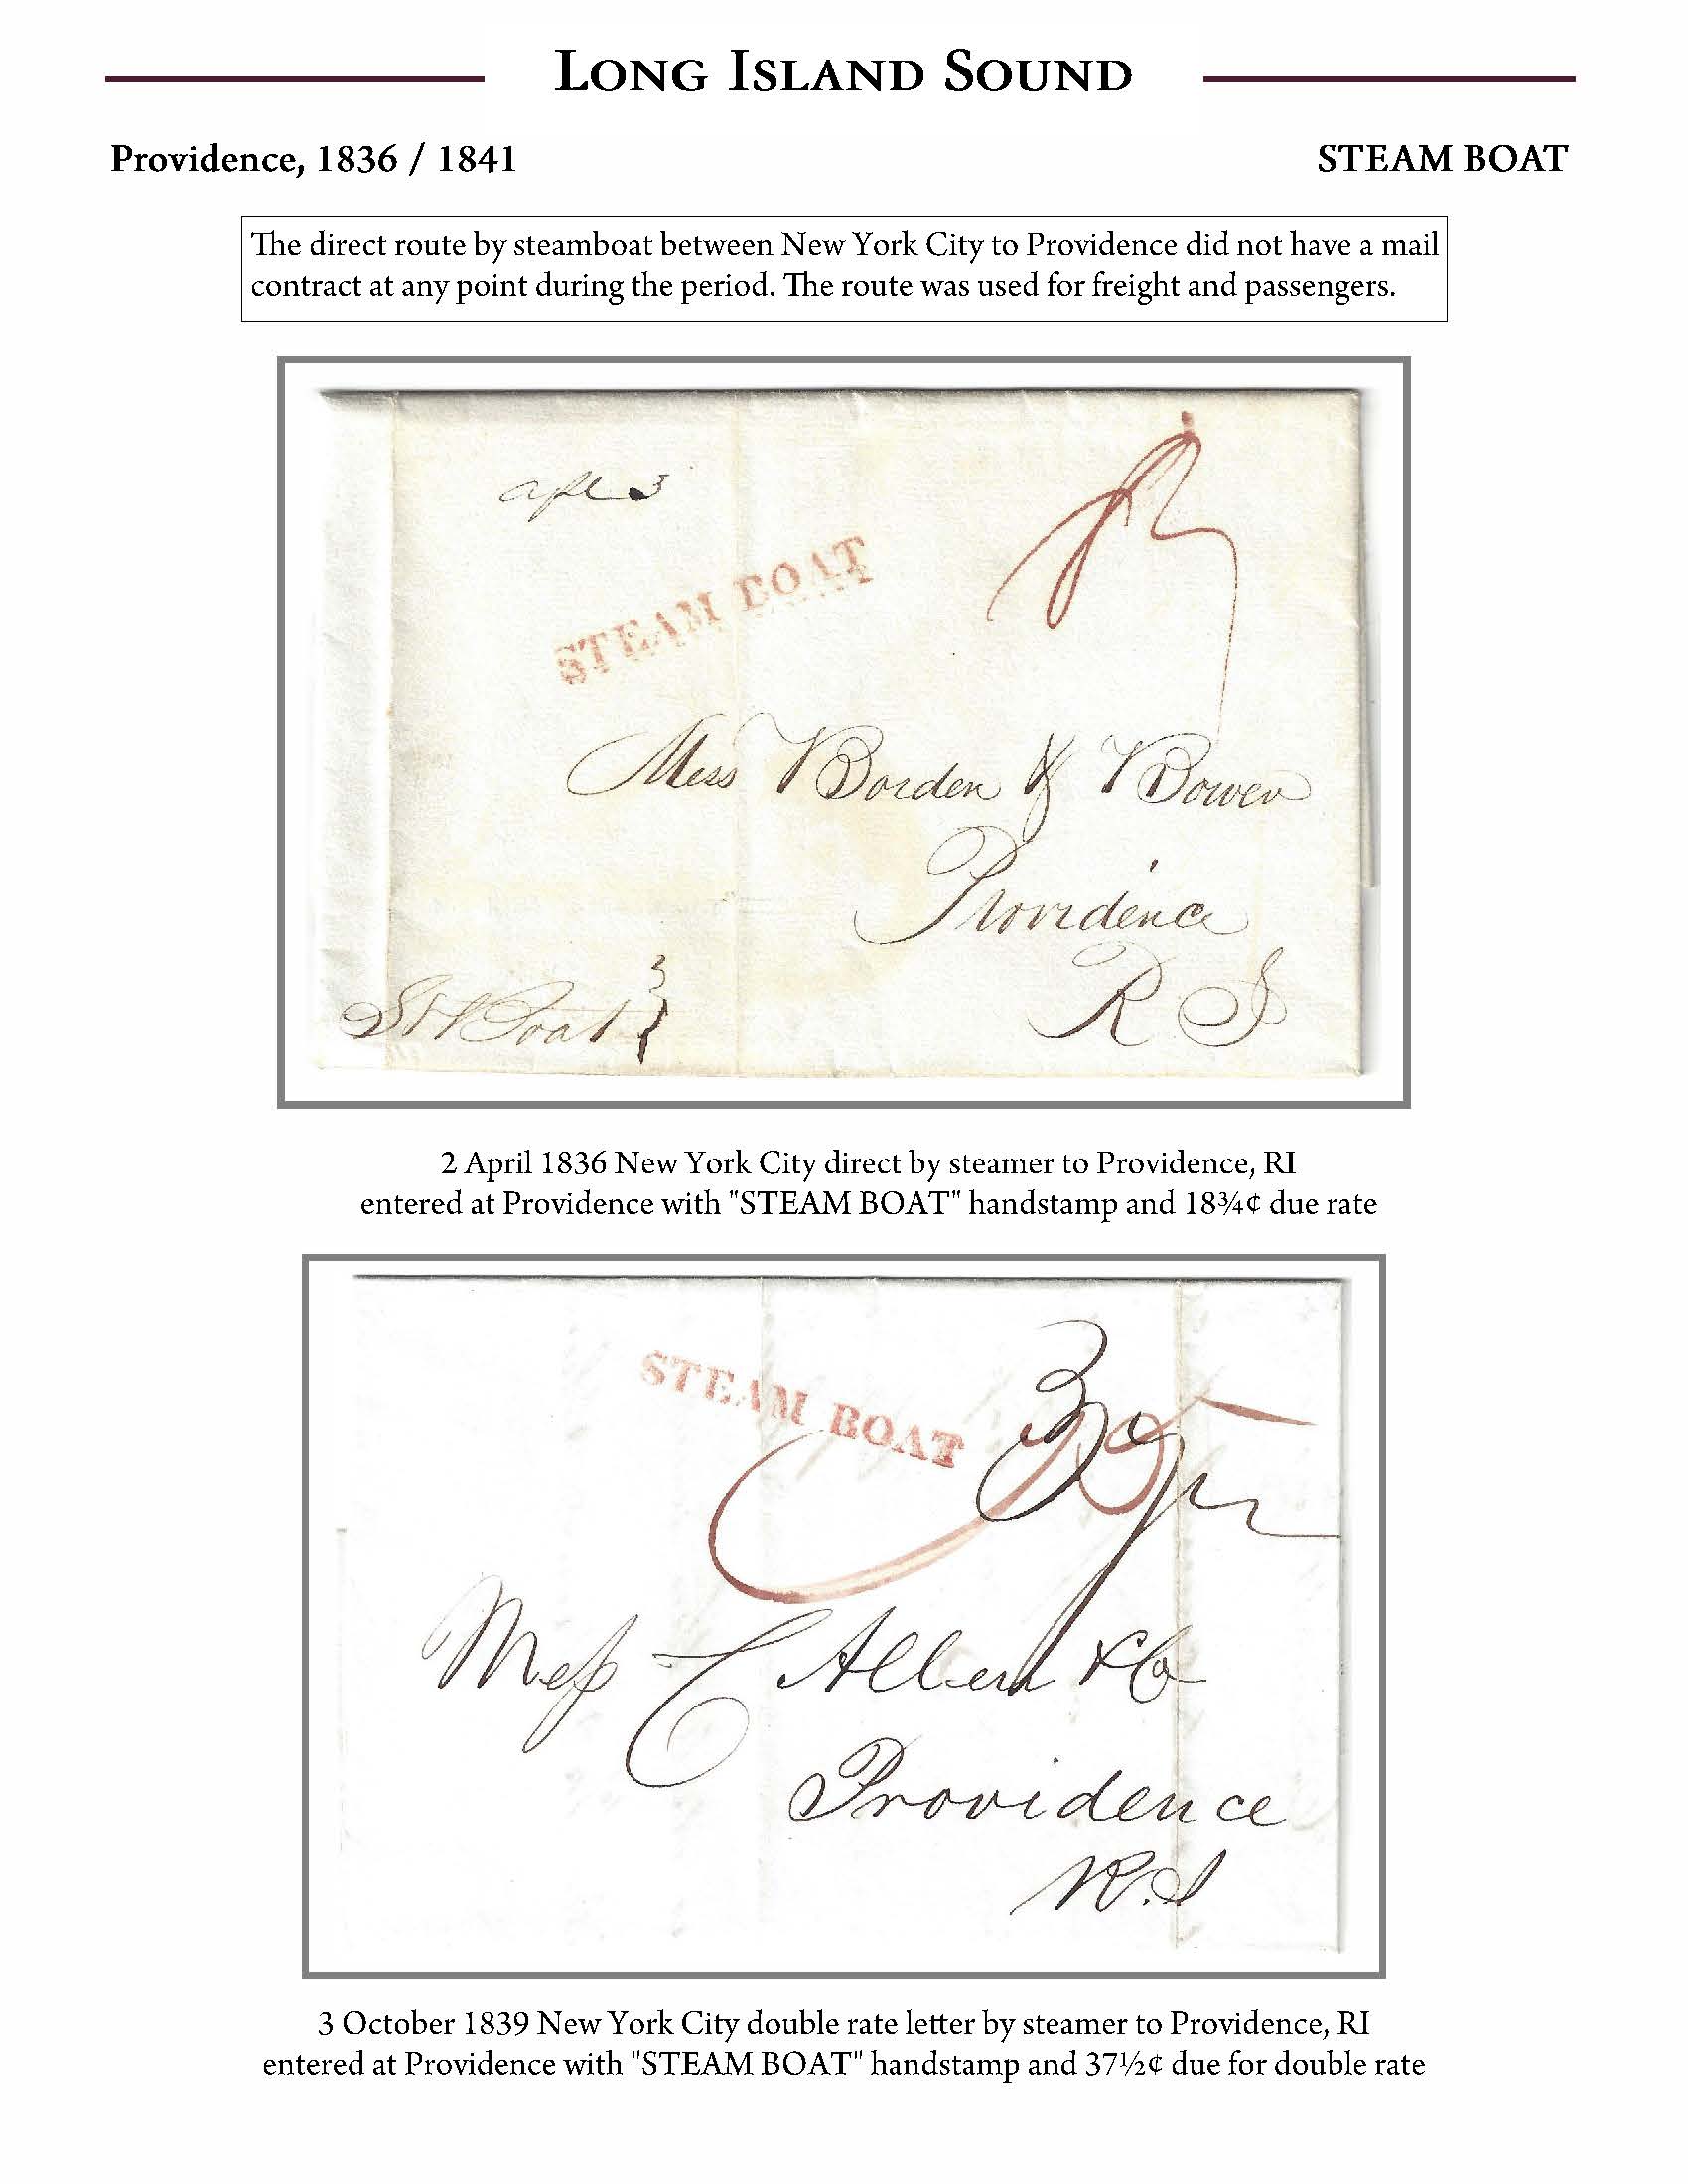 LONG ISLAND SOUND
Providence, 1836 / 1841
STEAM BOAT
The direct route by steamboat between New York City to Providence did not have a mail
contract at any point during the period. The route was used for freight and passengers.
apl 3
STEAM BOAT
Mess Borden & Bowen
Providence
R I
St Boat
2 April 1836 New York City direct by steamer to Providence, RI
entered at Providence with "STEAM BOAT" handstamp and 18¾¢ due rate
STEAM BOAT
Mess C Allen & Co
Providence
R.I
3 October 1839 New York City double rate letter by steamer to Providence, RI
entered at Providence with "STEAM BOAT" handstamp and 37½¢ due for double rate